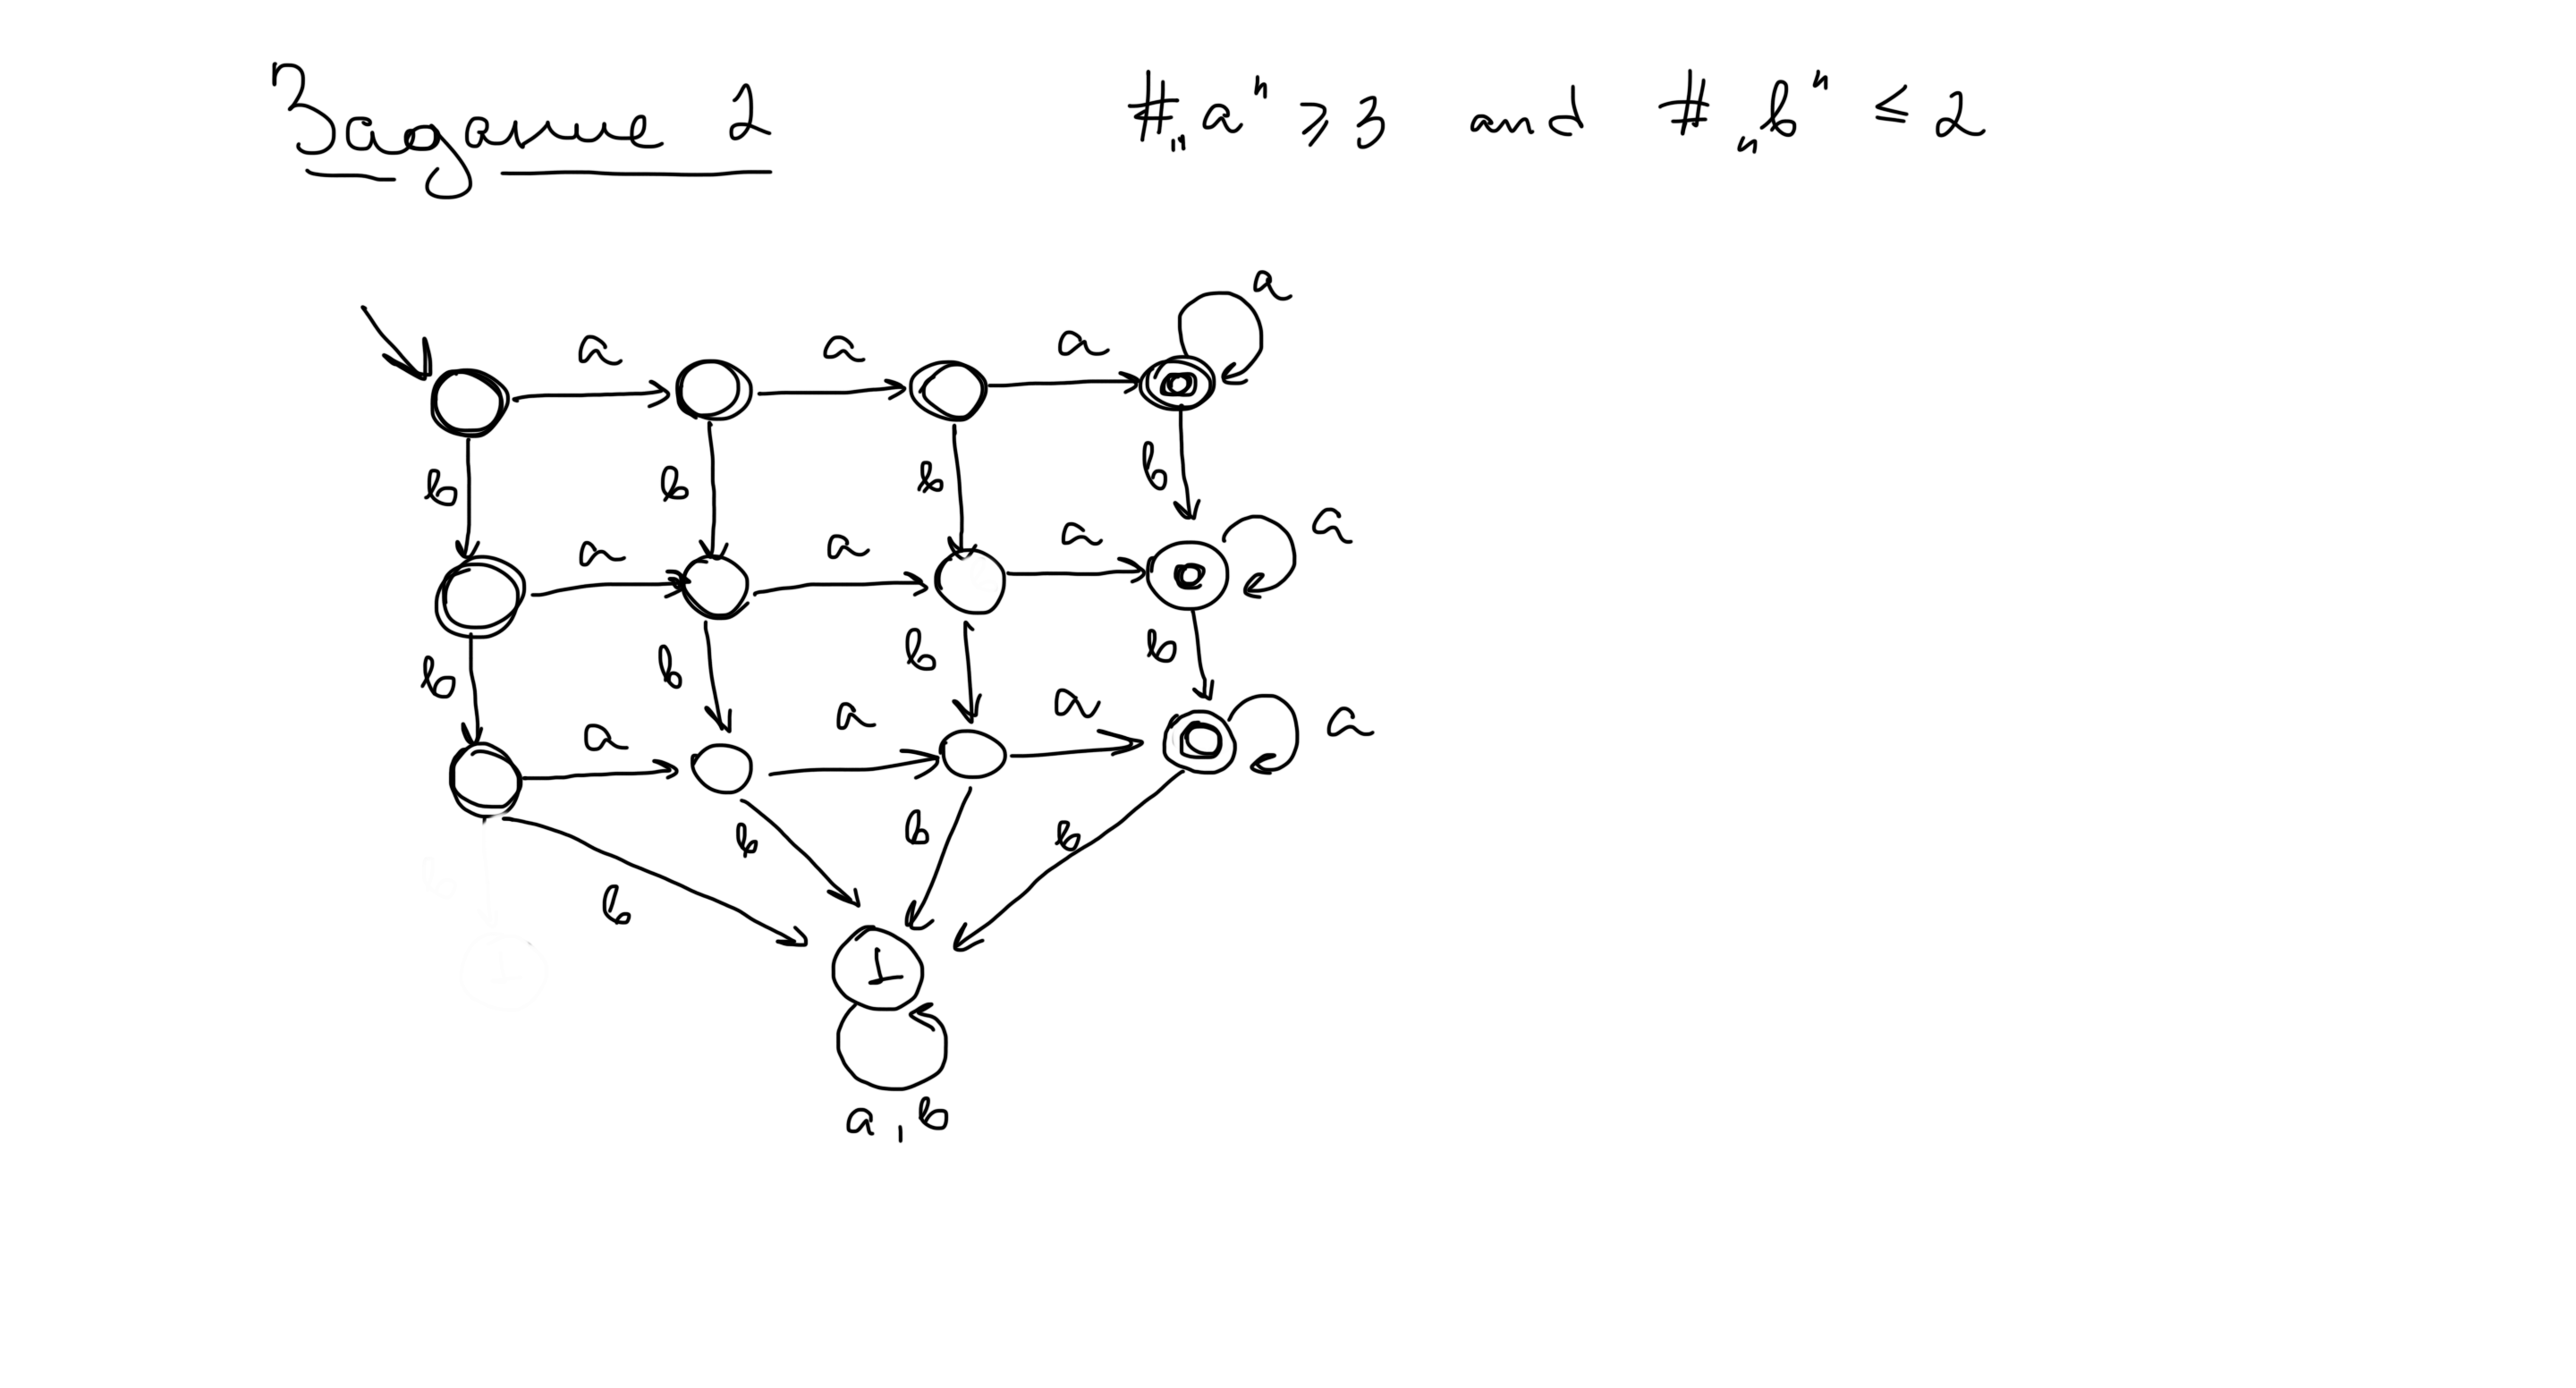 Задание 2
# "a" ⩾ 3 and # "b" ≤ 2
a
a a a
b b b b
a a a a
b b b b
a a a a
b b b b
⊥
a, b